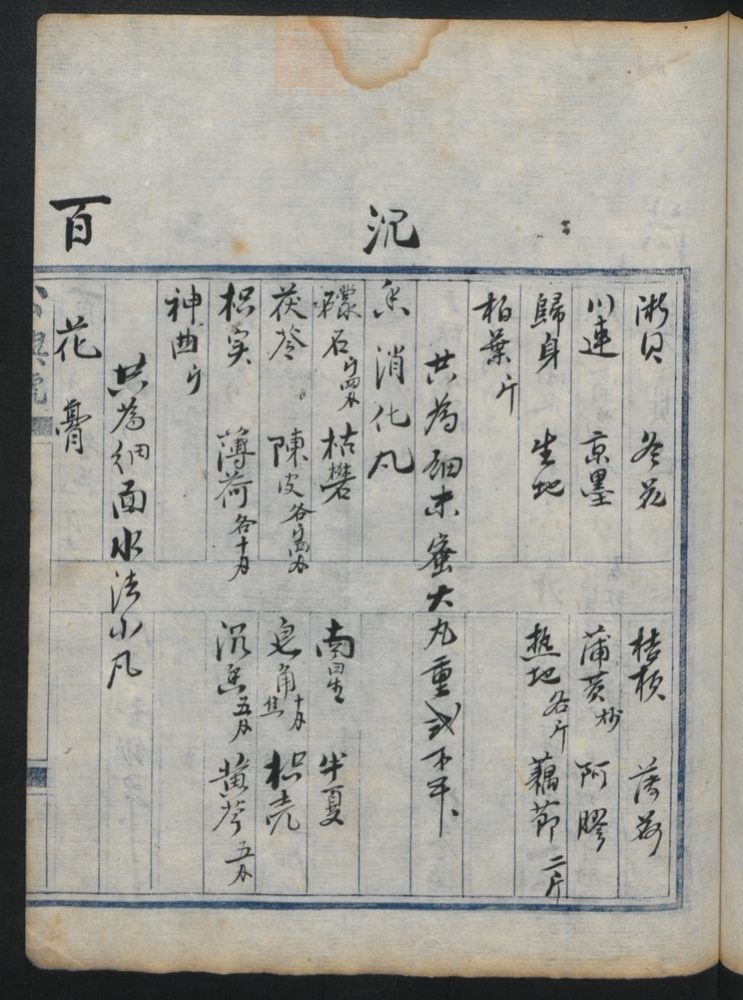 浙贝 冬花 桔梗 薄荷
川連 京墨 蒲黄炒 阿膠
歸身 生地 熟地各斤 藕節二斤
柏葉斤
共為細末蜜大丸重式
沉
香消化丸
礞石斤四两 枯礬 南星 半夏
茯苓 陳皮 皂角 枳壳
枳实 薄荷各十月 沉香五月 黄芩五两
神曲斤
共為細面水法小丸
百
花膏